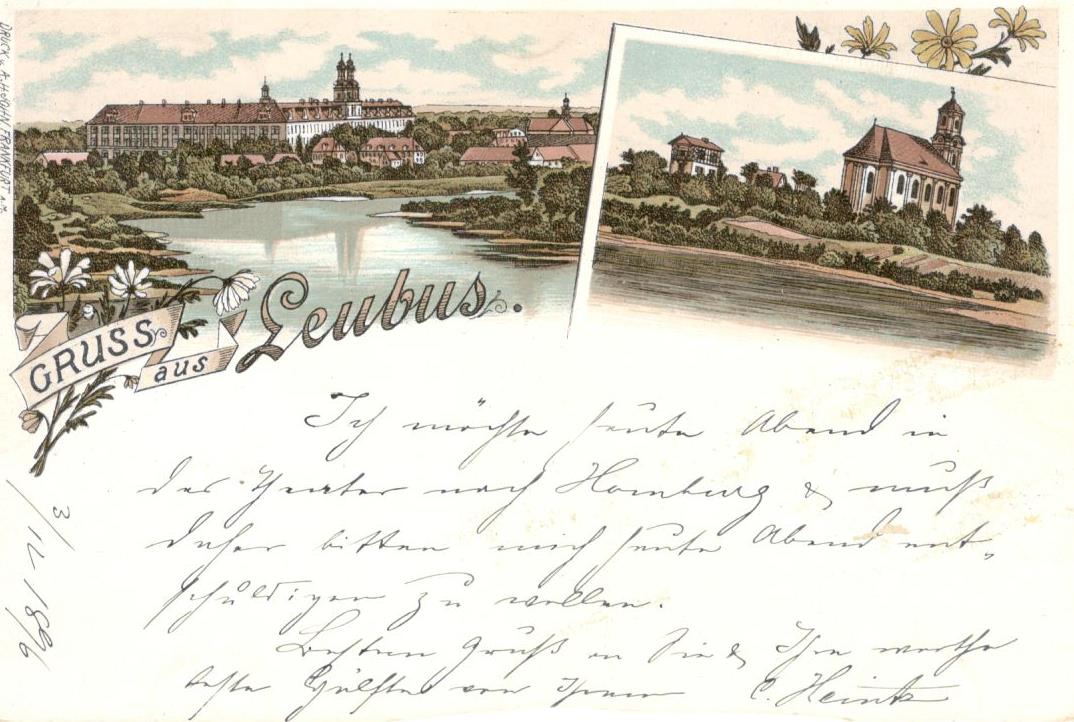 DRUCK v. A. H
FRANKFURT a. M.
GRUSS
aus
Leubus.
Ich möchte heute Abend in
das Theater nach Homburg & muß
daher bitten mich heute Abend ent„
schuldigen zu wollen.
Besten Gruß an Sie & Ihre werthe
beste Hälfte von Ihrem C. Heintz
3/IV 1896